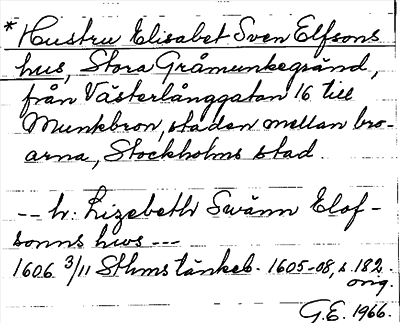 * Hustru Elisabet Sven Elfsons
hus, Stora Gråmunkegränd,
från Västerlånggatan 16 till
Munkbron, staden mellan bro-
arna, Stockholms stad.
-- h: Lizebeth Swänn Elof-
sonns hws ---
1606 3/11 Sthms tänkeb. 1605-08, s. 182
orig.
G.E. 1966.